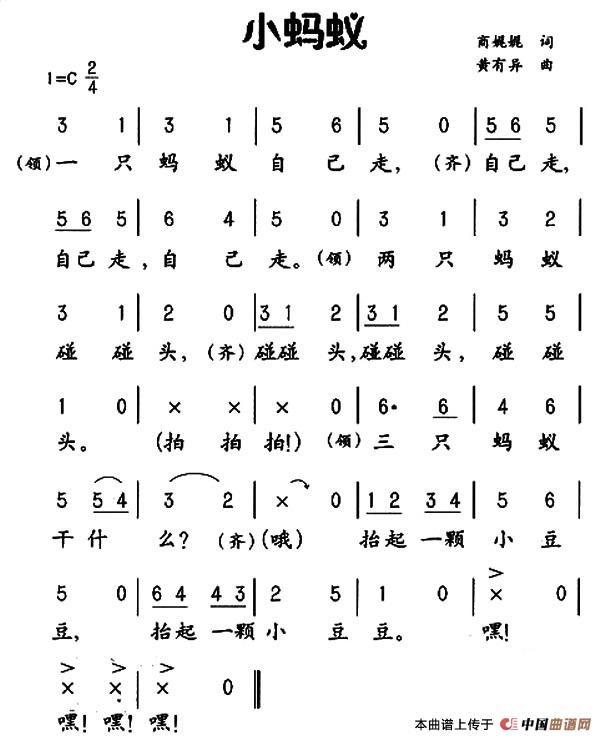 小蚂蚁
商娓娓 词
1=C 2/4 黄有异 曲
3 1 | 3 1 | 5 6 | 5 0 | 5 6 5 |
(领)一 只 蚂 蚁 自 己 走, (齐)自己走,
5 6 5 | 6 4 | 5 0 | 3 1 | 3 2 |
自己走,自 己 走。(领) 两 只 蚂 蚁
3 1 | 2 0 | 3 1 2 | 3 1 2 | 5 5 |
碰 碰 头, (齐)碰碰 头,碰碰头, 碰 碰
1 0 | × × | × 0 | 6· 6 | 4 6 |
头。 (拍 拍 拍!) (领)三 只 蚂 蚁
5 5 4 | 3 2 | × 0 | 1 2 3 4 | 5 6 |
干什 么? (齐)(哦) 抬起一颗 小 豆
5 0 | 6 4 4 3 | 2 5 | 1 0 | × 0 |
豆, 抬起一颗小 豆 豆。 嘿!
× × | × 0 ‖
嘿!嘿!嘿!
本曲谱上传于 中国曲谱网